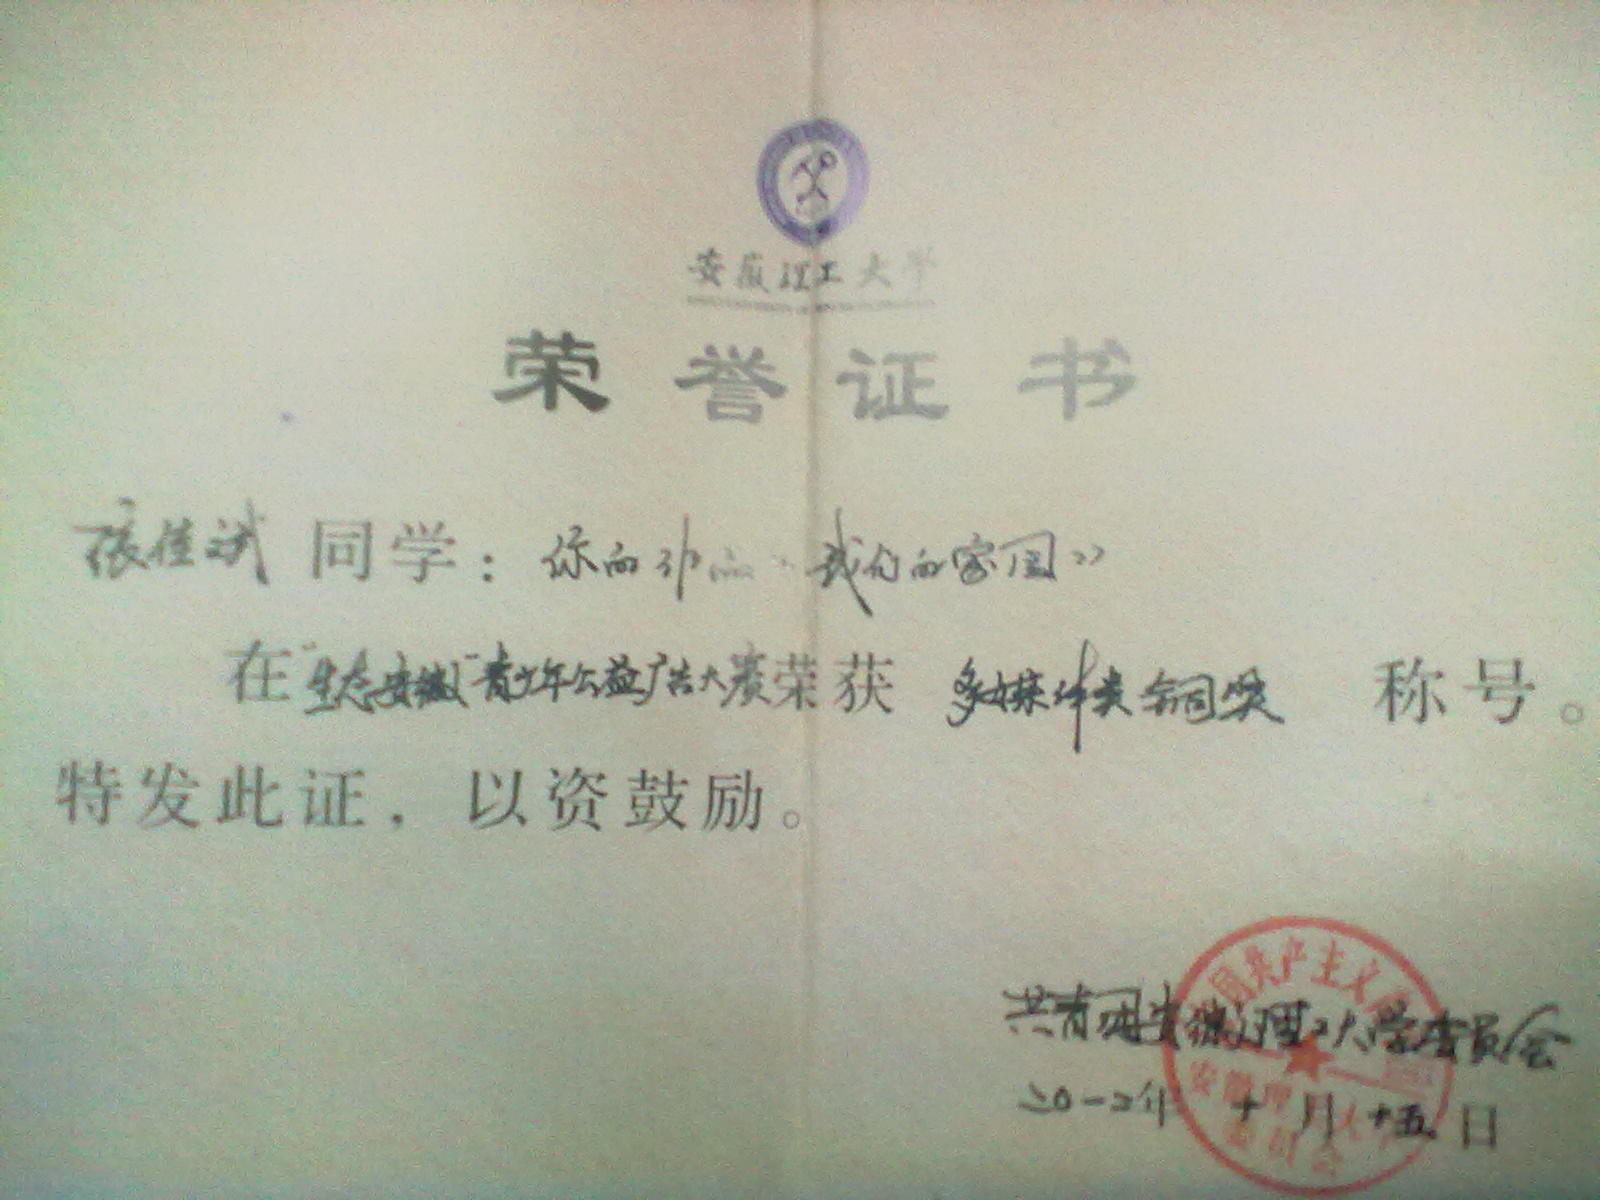 安徽理工大学
荣誉证书
张佳斌 同学：你的作品《我们的家园》
在"生态安徽"青少年公益广告大赛荣获 多媒体类铜奖 称号。
特发此证，以资鼓励。
共青团安徽理工大学委员会
二〇一二年 十 月 十五 日